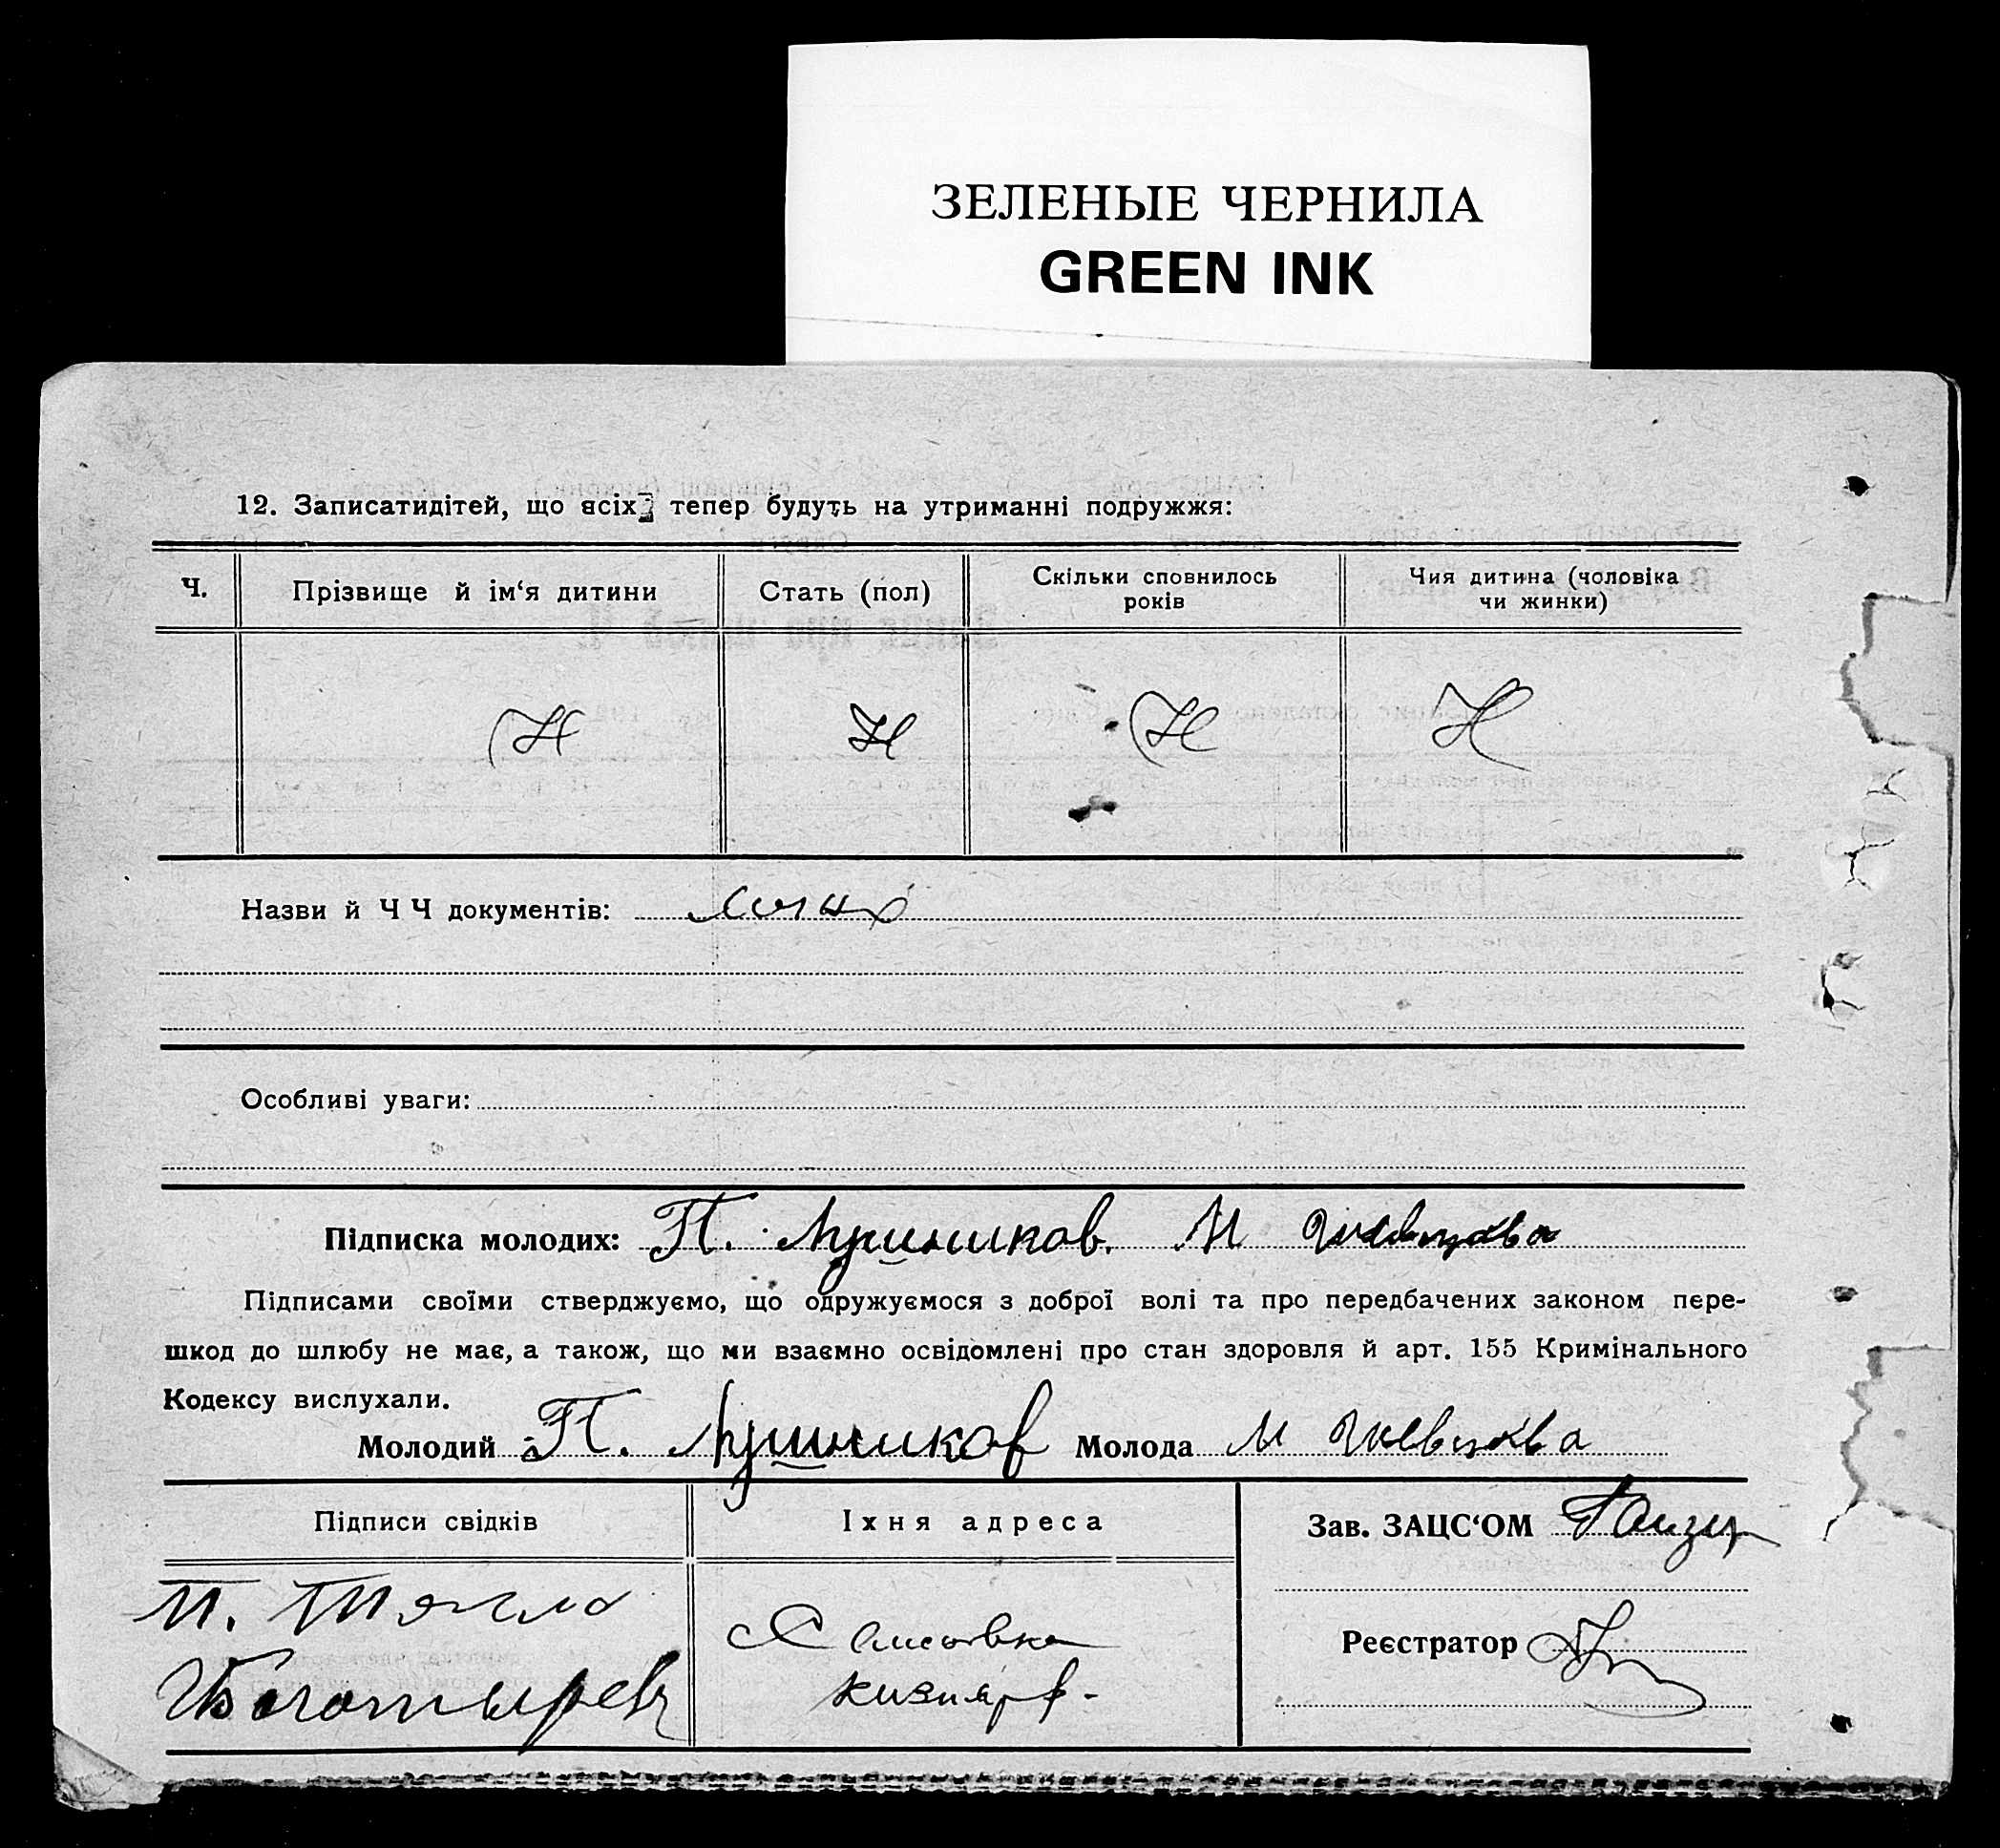 ЗЕЛЕНЫЕ ЧЕРНИЛА
GREEN INK
12. Записатидітей, що всіх тепер будуть на утриманні подружжя:
Ч. Прізвище й ім‘я дитини Стать (пол) Скільки сповнилось років Чия дитина (чоловіка чи жинки)
Н Н Н Н
Назви й Ч Ч документів:
Особливі уваги:
Підписка молодих: П. Лушников. М Шевцова
Підписами своїми стверджуємо, що одружуємося з доброї волі та про передбачених законом пере-
шкод до шлюбу не має, а також, що ми взаємно освідомлені про стан здоровля й арт. 155 Кримінального
Кодексу вислухали.
Молодий П. Лушников Молода М Шевцова
Підписи свідків Їхня адреса Зав. ЗАЦС‘ОМ
Реєстратор
Богатырев